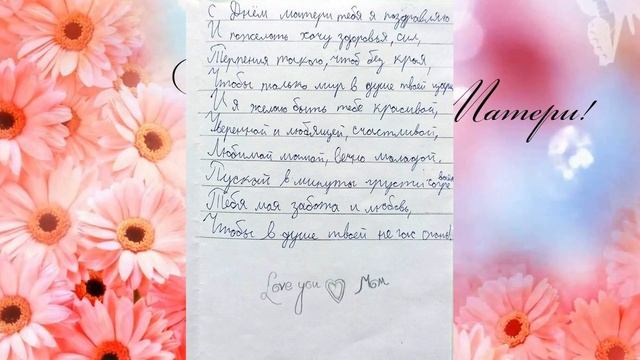 С Днём матери тебя я поздравляю
И пожелать хочу здоровья, сил,
Терпения такого, чтоб без края,
Чтобы только мир в душе твоей
И я желаю быть тебе красивой,
Уверенной и любящей, счастливой,
Любимой мамой, вечно молодой.
Пускай в минуты грусти
Тебя моя забота и любовь,
Чтобы в душе твоей не гас огонь!
Love you Mom
Матери!